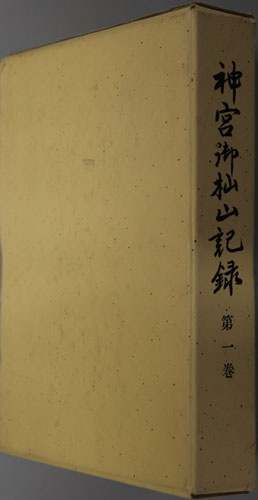 神宮御杣山記録
第一巻